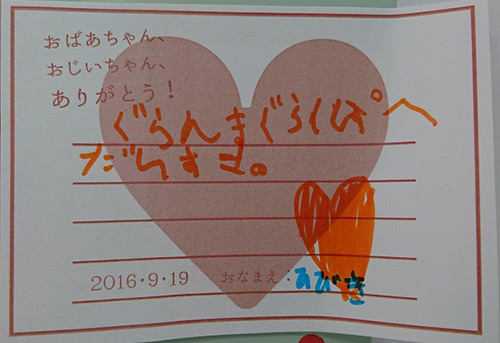 おばあちゃん、
おじいちゃん、
ありがとう!
ぐらんまぐらんぱへ
だいすき。
2016・9・19 おなまえ:あびき